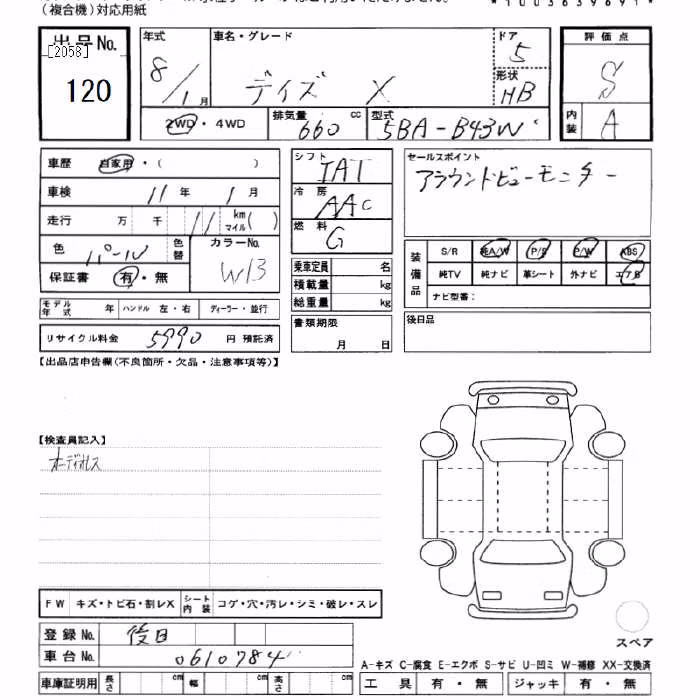 （複合機）対応用紙
*1003639691*
出品No.
[2058]
120
年式
8/1月
車名・グレード
デイズ X
ドア
5
形状
HB
評価点
S
内装
A
2WD・4WD
排気量 660 cc
型式 5BA-B43W
車歴 自家用・( )
車検 11年 1月
走行 万 千 11 km マイル( )
色 パール 色替
カラーNo. W13
保証書 有・無
モデル年式 年 ハンドル 左・右 ディーラー・並行
リサイクル料金 5990 円 預託済
シフト IAT
冷房 AAC
燃料 G
乗車定員 名
積載量 kg
総重量 kg
書類期限
月 日
セールスポイント
アラウンドビューモニター
装備品
S/R 純A/W P/S P/W ABS
純TV 純ナビ 革シート 外ナビ エアB
ナビ型番：
後日品
【出品店申告欄(不良箇所・欠品・注意事項等)】
【検査員記入】
オーディオレス
FW キズ・トビ石・割レX シート内装 コゲ・穴・汚レ・シミ・破レ・スレ
登録No. 後日
車台No. 0610784
車庫証明用 長さ cm 幅 cm 高さ cm
スペア
A-キズ C-腐食 E-エクボ S-サビ U-凹ミ W-補修 XX-交換済
工具 有・無 ジャッキ 有・無